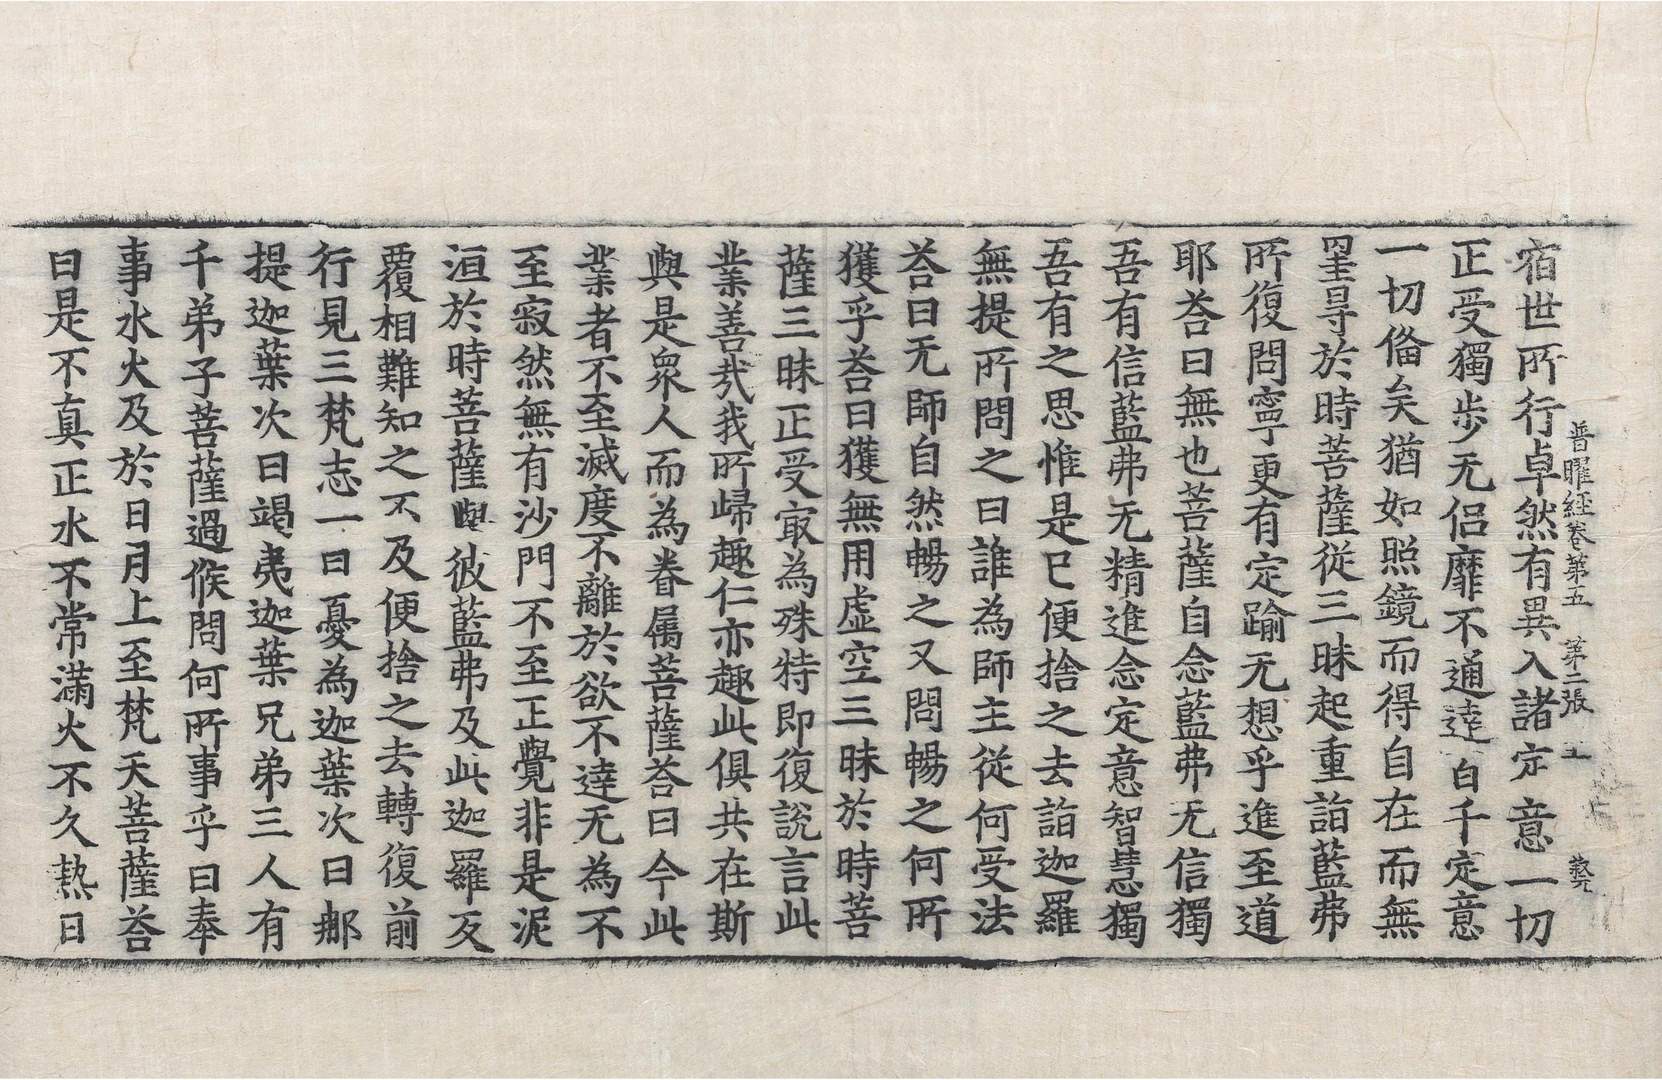 普曜経卷第五　第二張　　藝
宿世所行卓然有異入諸定意一切
正受獨步无侣靡不通達百千定意
一切俻矣猶如照鏡而得自在而無
罣㝵於時菩薩従三昧起重詣藍弗
所復問寧更有定踰无想乎進至道
耶荅曰無也菩薩自念藍弗无信獨
吾有信藍弗无精進念定意智慧獨
吾有之思惟是已便捨之去詣迦羅
無提所問之曰誰為師主従何受法
荅曰无師自然暢之又問暢之何所
獲乎荅曰獲無用虚空三昧於時菩
薩三昧正受㝡為殊特即復說言此
業善㢤我所歸趣仁亦趣此俱共在斯
與是衆人而為眷属菩薩荅曰今此
業者不至滅度不離於欲不達无為不
至寂然無有沙門不至正覺非是泥
洹於時菩薩與彼藍弗及此迦羅反
覆相難知之不及便捨之去轉復前
行見三梵志一曰憂為迦葉次曰郍
提迦葉次曰竭夷迦葉兄弟三人有
千弟子菩薩過候問何所事乎曰奉
事水火及於日月上至梵天菩薩荅
曰是不真正水不常滿火不久熱日